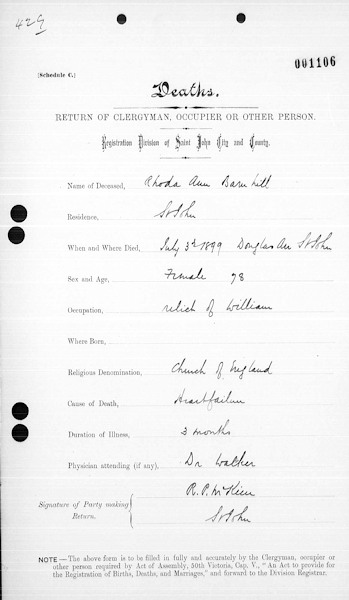 429
001106
(Schedule C.)
Deaths.
RETURN OF CLERGYMAN, OCCUPIER OR OTHER PERSON.
Registration Division of Saint John City and County.
Name of Deceased, Rhoda Ann Barnhill
Residence, St John
When and Where Died, July 3rd 1899 Douglas Av St John
Sex and Age, Female 78
Occupation, relict of William
Where Born,
Religious Denomination, Church of England
Cause of Death, Heart failure
Duration of Illness, 3 months
Physician attending (if any), Dr Walker
Signature of Party making Return. { R. P. McKiern
St John
NOTE—The above form is to be filled in fully and accurately by the Clergyman, occupier or
other person required by Act of Assembly, 50th Victoria, Cap. V., "An Act to provide for
the Registration of Births, Deaths, and Marriages," and forward to the Division Registrar.